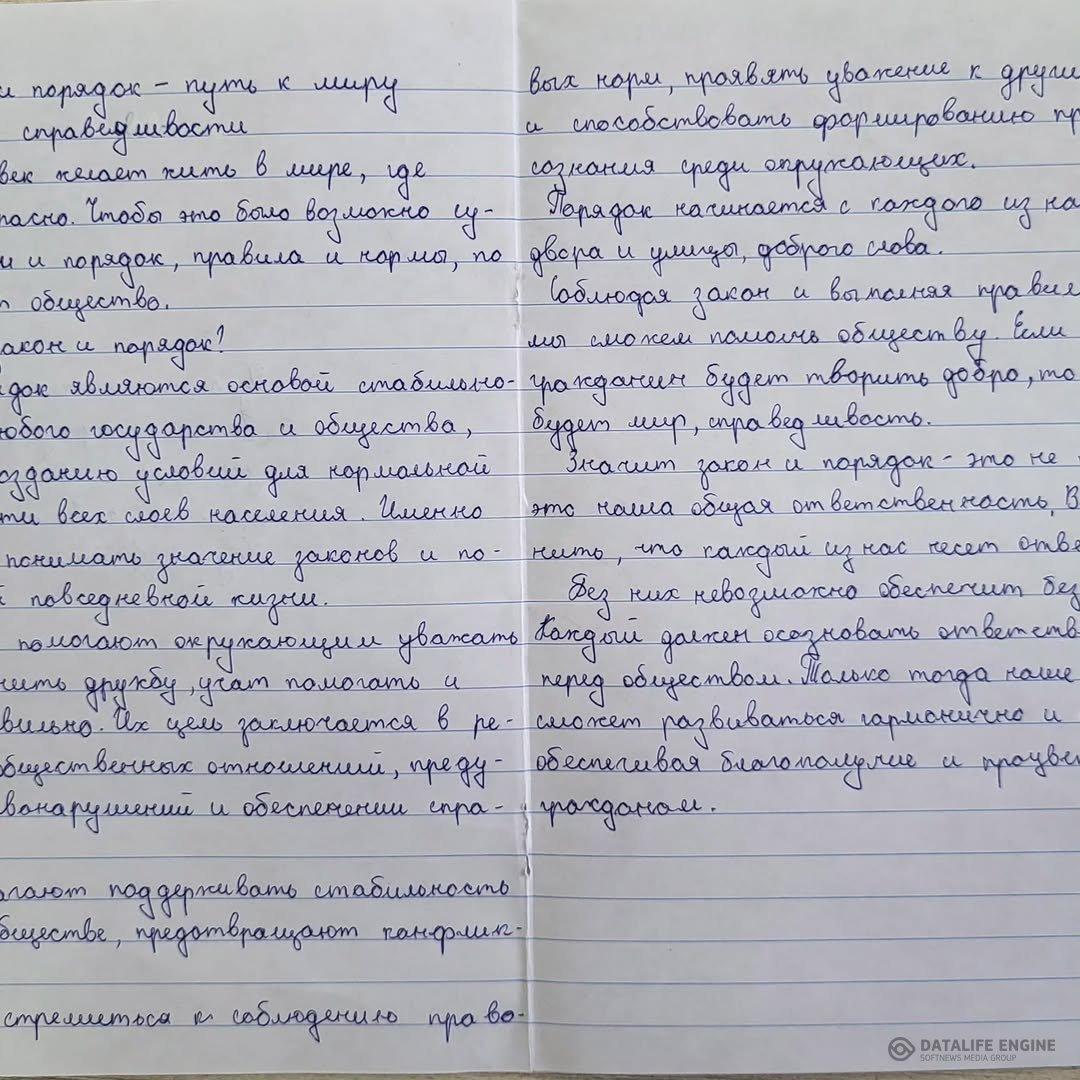 и порядок - путь к миру
справедливости
век желает жить в мире, где
пасно. Чтобы это было возможно су-
и и порядок, правила и нормы, по
т общество.
акон и порядок?
док являются основой стабильно-
юбого государства и общества,
озданию условий для нормальной
ти всех слоев населения. Именно
понимать значение законов и по-
й повседневной жизни.
помогают окружающим уважать
нить дружбу, учат помогать и
вильно. Их цель заключается в ре-
общественных отношений, преду-
вонарушений и обеспечении спра-
огают поддерживать стабильность
обществе, предотвращают конфлик-
стремиться к соблюдению право-
вых норм, проявять уважение к други
и способствовать формированию пр
сознания среди окружающих.
Порядок начинается с каждого из на
двора и улицы, доброго слова.
Соблюдая закон и выполняя правил
мы сможем помочь обществу. Если
гражданин будет творить добро, то
будет мир, справедливость.
Значит закон и порядок - это не
это наша общая ответственность, В
нить, что каждый из нас несет отве
Без них невозможно обеспечит без
Каждый должен осозновать ответств
перед обществом. Только тогда наше
сможет развиваться гармонично и
обеспечивая благополучие и процве
гражданам.
DATALIFE ENGINE
SOFTNEWS MEDIA GROUP